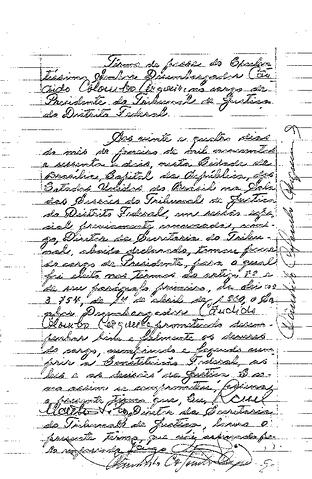 Termo de posse do Excelen-
tíssimo Senhor Desembargador Cân-
dido Colombo Cerqueira no cargo de
Presidente do Tribunal de Justiça
do Distrito Federal.
Aos vinte e quatro dias
do mês de janeiro de mil novecentos
e sessenta e dois, nesta Cidade de
Brasília, Capital da República, dos
Estados Unidos do Brasil na Sala
das Sessões do Tribunal de Justiça
do Distrito Federal, em sessão espe-
cial previamente convocada, comi-
go, Diretor da Secretaria do Tribu-
nal, abaixo declarado, tomou posse
do cargo de Presidente, para o qual
foi eleito nos termos do artigo 8º e
de seu parágrafo primeiro, da lei nº
3.754, de 14 de abril de 1960, o Se-
nhor Desembargador Cândido
Colombo Cerqueira prometendo desem-
penhar bem e fielmente os deveres
do cargo, cumprindo e fazendo cum-
prir a Constituição Federal, as
leis e as decisões da Justiça. E co-
mo assim se comprometeu,
o presente termo que, eu,
Diretor da Secretaria
do Tribunal de Justiça, lavro o
presente termo, que vai assinado pe-
lo
Cândido Colombo Cerqueira